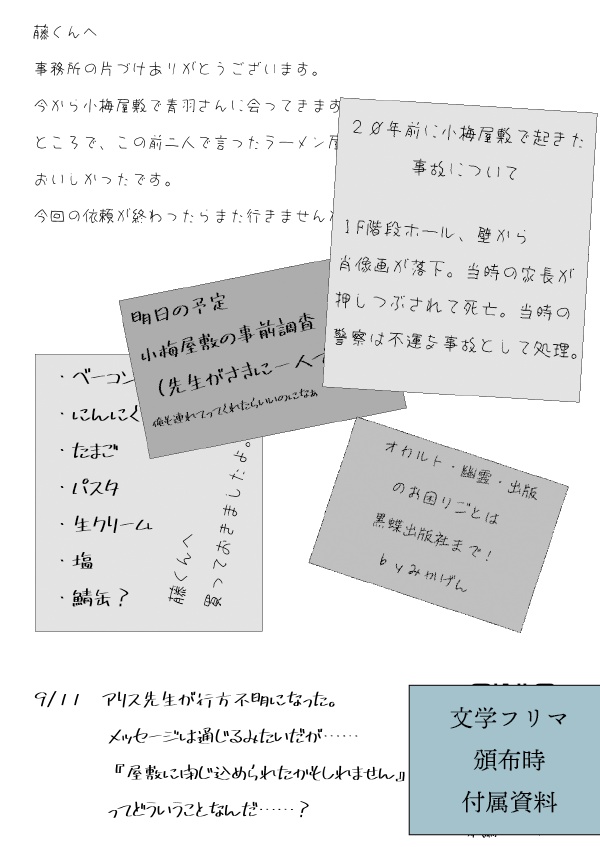 藤くんへ
事務所の片づけありがとうございます。
今から小梅屋敷で青羽さんに会ってきます
ところで、この前二人で言ったラーメン屋
おいしかったです。
今回の依頼が終わったらまた行きません
２０年前に小梅屋敷で起きた
事故について
１F階段ホール、壁から
肖像画が落下。当時の家長が
押しつぶされて死亡。当時の
警察は不運な事故として処理。
明日の予定
小梅屋敷の事前調査
(先生がさきに一人で
俺も連れてってくれたらいいのになあ
・ベーコン
・にんにく
・たまご
・パスタ
・生クリーム
・塩
・鯖缶？
藤くんへ
買っておきましたよ。
オカルト・幽霊・出版
のお困りごとは
黒蝶出版社まで！
by みかげん
9/11 アリス先生が行方不明になった。
メッセージは通じるみたいだが……
『屋敷に閉じ込められたかもしれません。』
ってどういうことなんだ……？
文学フリマ
頒布時
付属資料